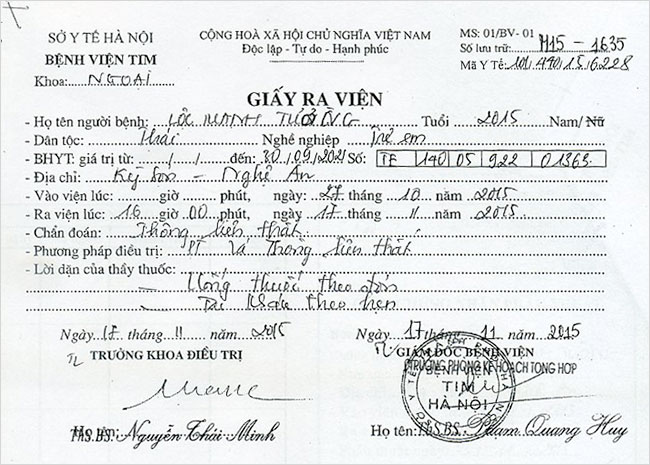 SỞ Y TẾ HÀ NỘI
BỆNH VIỆN TIM
Khoa: NGOẠI
CỘNG HOÀ XÃ HỘI CHỦ NGHĨA VIỆT NAM
Độc lập - Tự do - Hạnh phúc
MS: 01/BV- 01
Số lưu trữ: M15 - 1635
Mã Y Tế: 101/490/15/6228
GIẤY RA VIỆN
- Họ tên người bệnh: LÔC MẠNH TƯỞNG Tuổi 2015 Nam/ Nữ
- Dân tộc: Thái Nghề nghiệp Trẻ em
- BHYT: giá trị từ: / / đến: 30/09/2021 Số: TE 140 05 922 01363
- Địa chỉ: Kỳ Sơn - Nghệ An
- Vào viện lúc: giờ phút, ngày: 27 tháng 10 năm 2015
- Ra viện lúc: 16 giờ 00 phút, ngày 17 tháng 11 năm 2015
- Chẩn đoán: Thông liên thất
- Phương pháp điều trị: PT Vá Thông liên thất
- Lời dặn của thầy thuốc:
- Uống thuốc theo đơn
- Tái khám theo hẹn
Ngày 17 tháng 11 năm 2015
TL TRƯỞNG KHOA ĐIỀU TRỊ
THS.BS. Nguyễn Thái Minh
Ngày 17 tháng 11 năm 2015
TL GIÁM ĐỐC BỆNH VIỆN
TRƯỞNG PHÒNG KẾ HOẠCH TỔNG HỢP
BỆNH VIỆN
TIM
HÀ NỘI
Họ tên: ThS.BS. Phạm Quang Huy